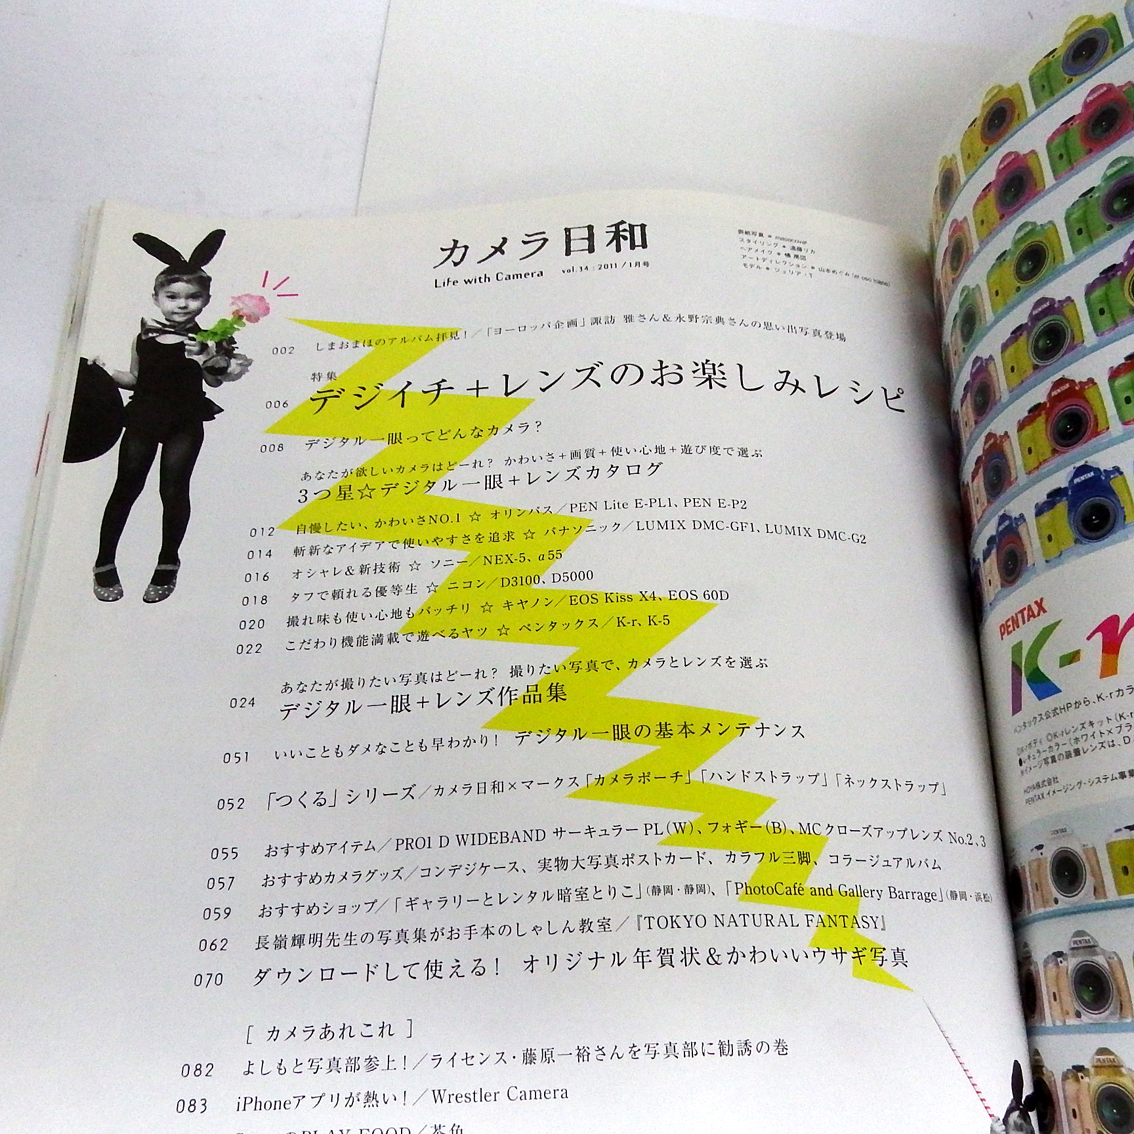 カメラ日和
Life with Camera vol.34：2011／1月号
スタイリング ● 遠藤リカ
アートディレクション ● 山本めぐみ
モデル ● ジュリア・T
002 しまおまほのアルバム拝見！／「ヨーロッパ企画」諏訪 雅さん＆永野宗典さんの思い出写真登場
特集
006 デジイチ＋レンズのお楽しみレシピ
008 デジタル一眼ってどんなカメラ？
あなたが欲しいカメラはどーれ？ かわいさ＋画質＋使い心地＋遊び度で選ぶ
3つ星☆デジタル一眼＋レンズカタログ
012 自慢したい、かわいさNO.1 ☆ オリンパス／PEN Lite E-PL1、PEN E-P2
014 斬新なアイデアで使いやすさを追求 ☆ パナソニック／LUMIX DMC-GF1、LUMIX DMC-G2
016 オシャレ＆新技術 ☆ ソニー／NEX-5、α55
018 タフで頼れる優等生 ☆ ニコン／D3100、D5000
020 撮れ味も使い心地もバッチリ ☆ キヤノン／EOS Kiss X4、EOS 60D
022 こだわり機能満載で遊べるヤツ ☆ ペンタックス／K-r、K-5
あなたが撮りたい写真はどーれ？ 撮りたい写真で、カメラとレンズを選ぶ
024 デジタル一眼＋レンズ作品集
051 いいこともダメなことも早わかり！ デジタル一眼の基本メンテナンス
052 「つくる」シリーズ／カメラ日和×マークス「カメラポーチ」「ハンドストラップ」「ネックストラップ」
055 おすすめアイテム／PRO1 D WIDEBAND サーキュラーPL(W)、フォギー(B)、MCクローズアップレンズ No.2、3
057 おすすめカメラグッズ／コンデジケース、実物大写真ポストカード、カラフル三脚、コラージュアルバム
059 おすすめショップ／「ギャラリーとレンタル暗室とりこ」(静岡・静岡)、「PhotoCafé and Gallery Barrage」(静岡・浜松)
062 長嶺輝明先生の写真集がお手本のしゃしん教室／『TOKYO NATURAL FANTASY』
070 ダウンロードして使える！ オリジナル年賀状＆かわいいウサギ写真
［ カメラあれこれ ］
082 よしもと写真部参上！／ライセンス・藤原一裕さんを写真部に勧誘の巻
083 iPhoneアプリが熱い！／Wrestler Camera
PLAY FOOD／茶色
PENTAX
K-r
ペンタックス公式HPから、K-rカラ
HOYA株式会社
PENTAX イメージング・システム事業